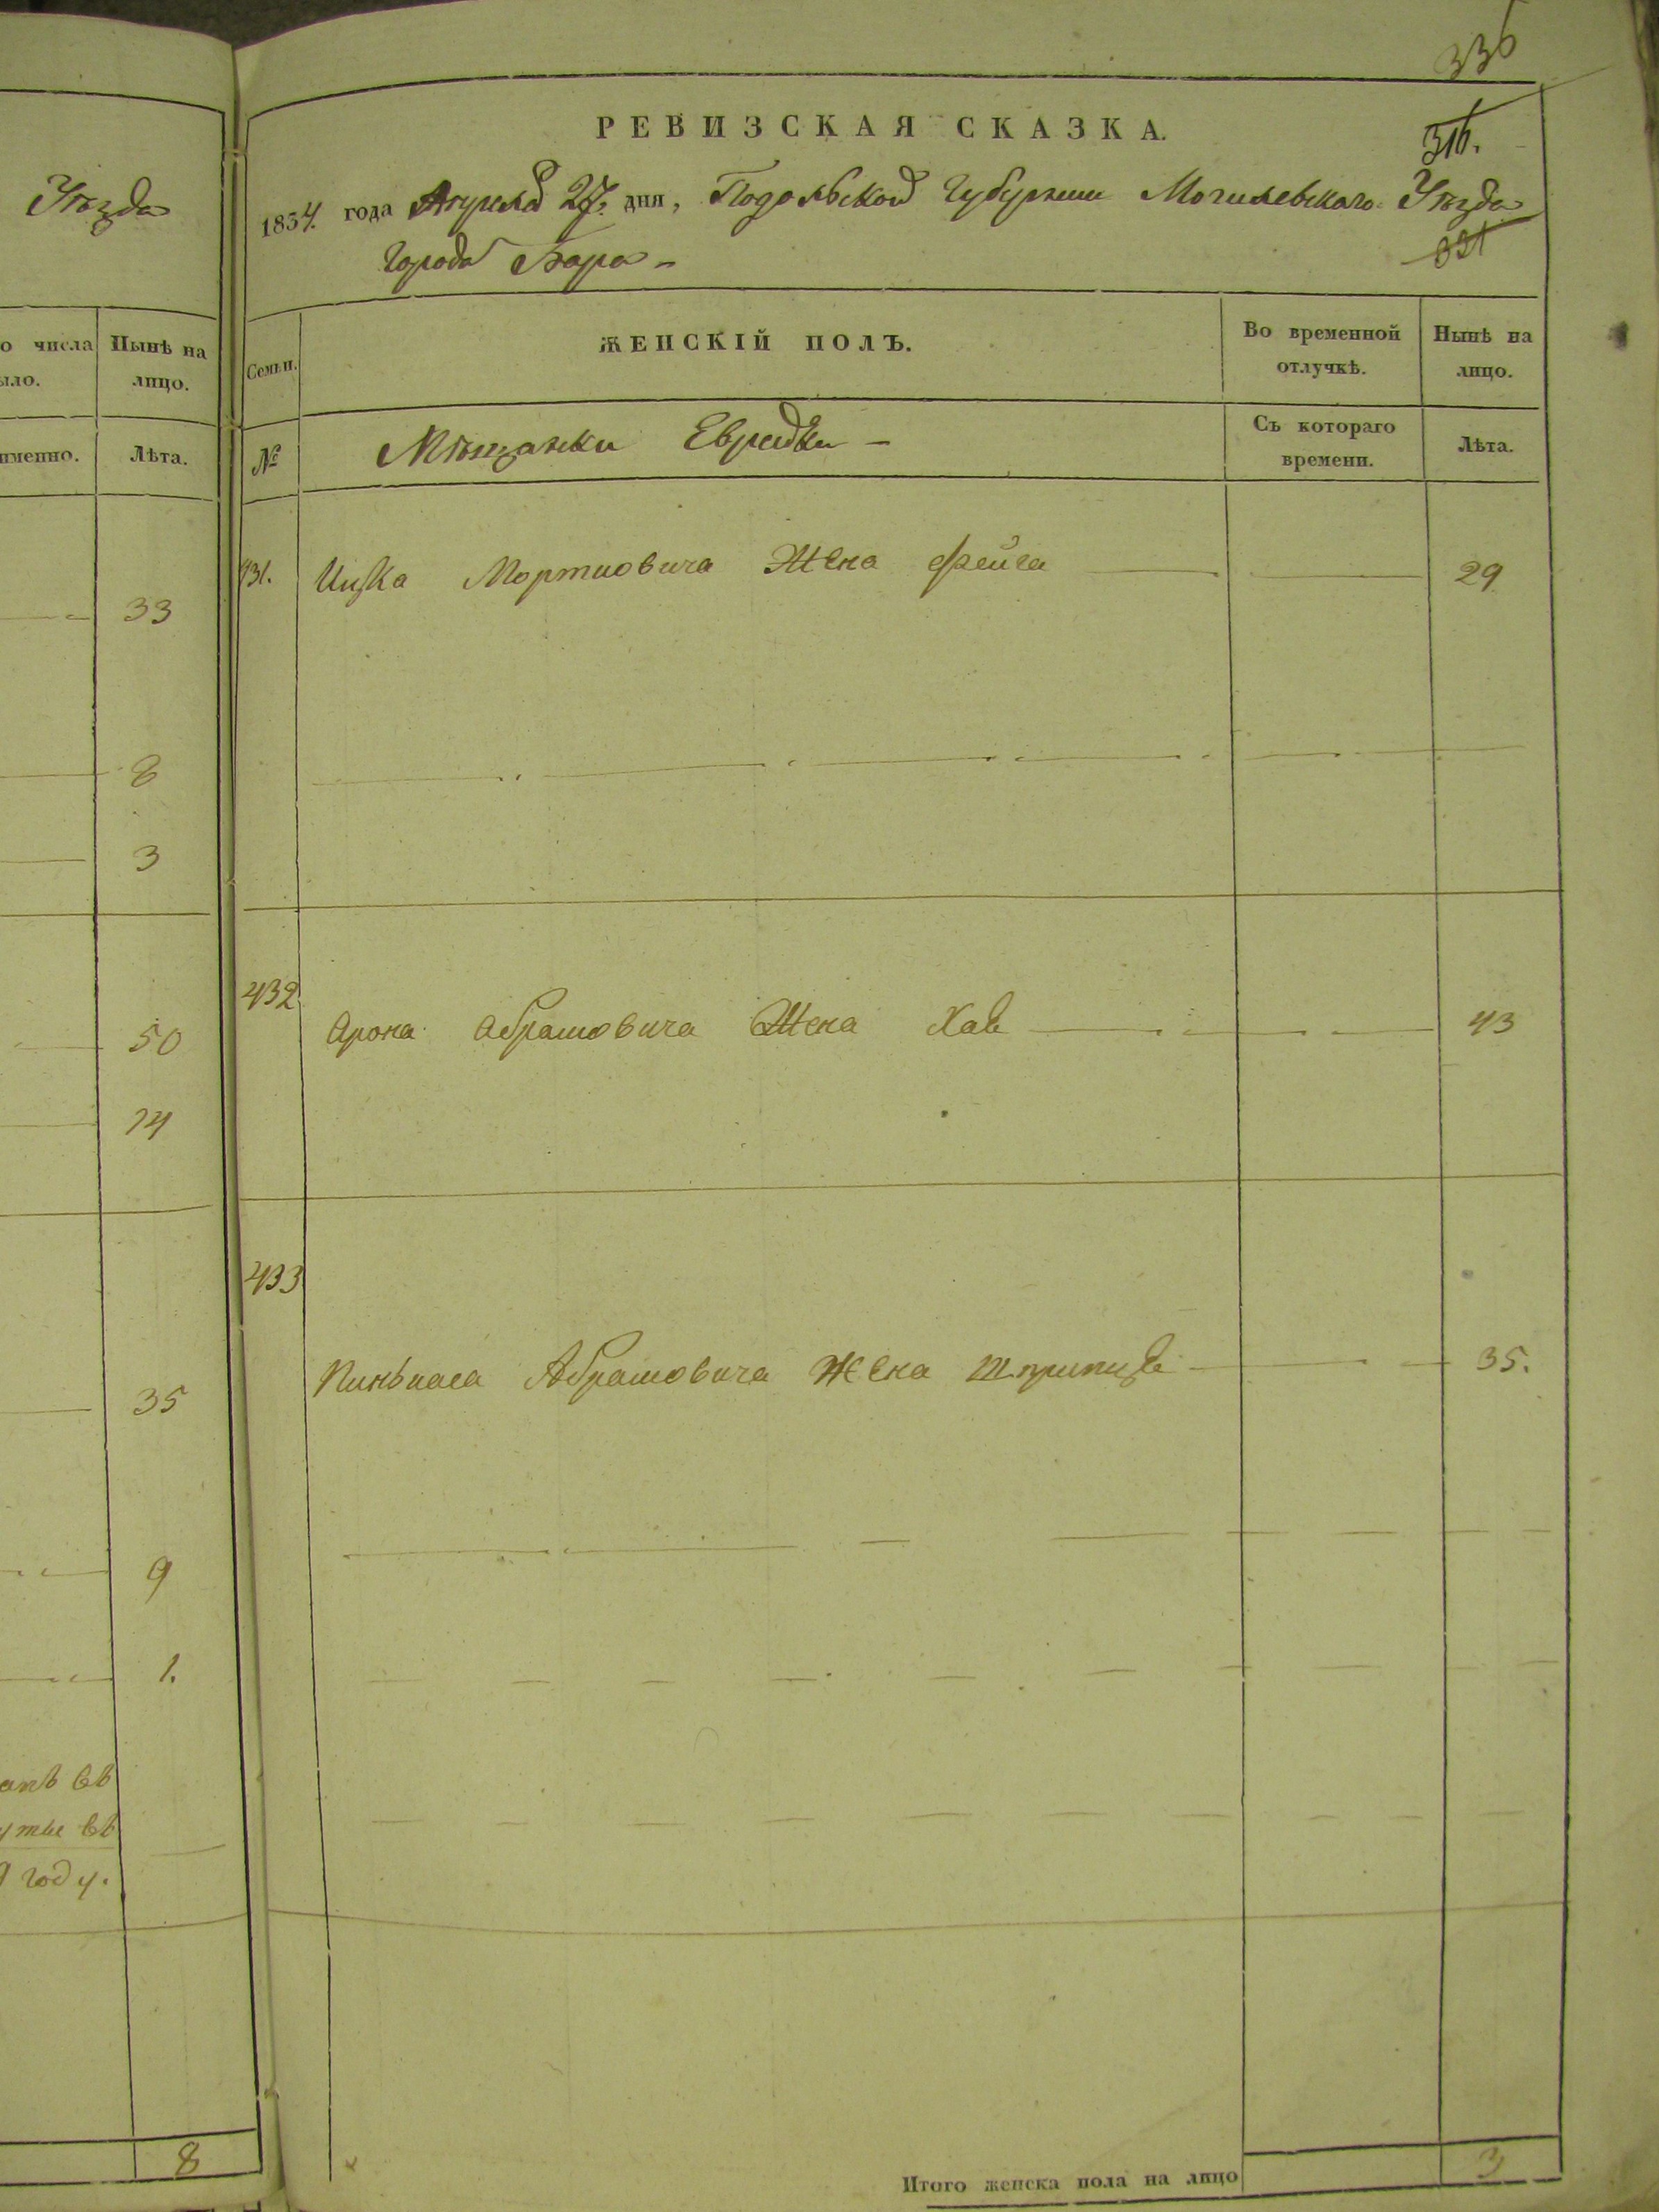 Уѣзда
о числа
ыло.
Нынѣ на
лицо.
именно.
Лѣта.
33
8
3
50
14
35
9
1.
въ
въ
году.
8
336
РЕВИЗСКАЯ СКАЗКА.
316.
1834. года Апреля 27. дня, Подольской Губернии Могилевскаго Уѣзда
321
Города Бара
Семьи.
ЖЕНСКІЙ ПОЛЪ.
Во временной
отлучкѣ.
Нынѣ на
лицо.
№
Мѣщанки Еврейки
Съ котораго
времени.
Лѣта.
431. Ицка Мортковича Жена Фейга 29
432 Арона Абрамовича Жена Хае 43
433
Пинькаса Абрамовича Жена Шпринце 35.
Итого женска пола на лицо 3